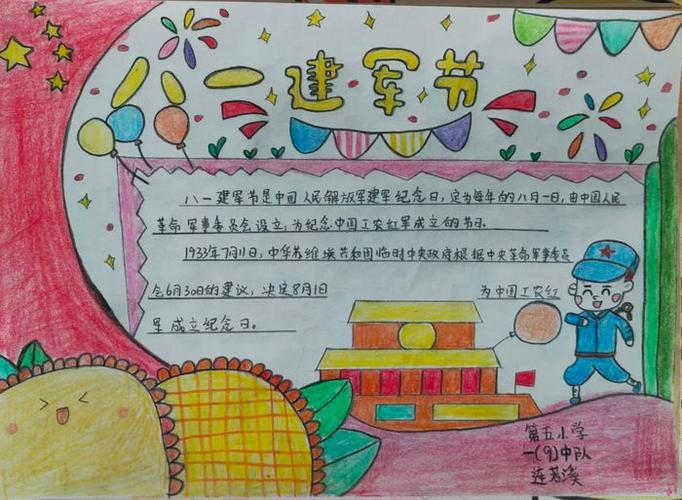 八一建军节
八一建军节是中国人民解放军建军纪念日，定为每年的八月一日，由中国人民
革命军事委员会设立，为纪念中国工农红军成立的节日。
1933年7月11日，中华苏维埃共和国临时中央政府根据中央革命军事委员
会6月30日的建议，决定8月1日为中国工农红
军成立纪念日。
第五小学
一(9)中队
连若溪